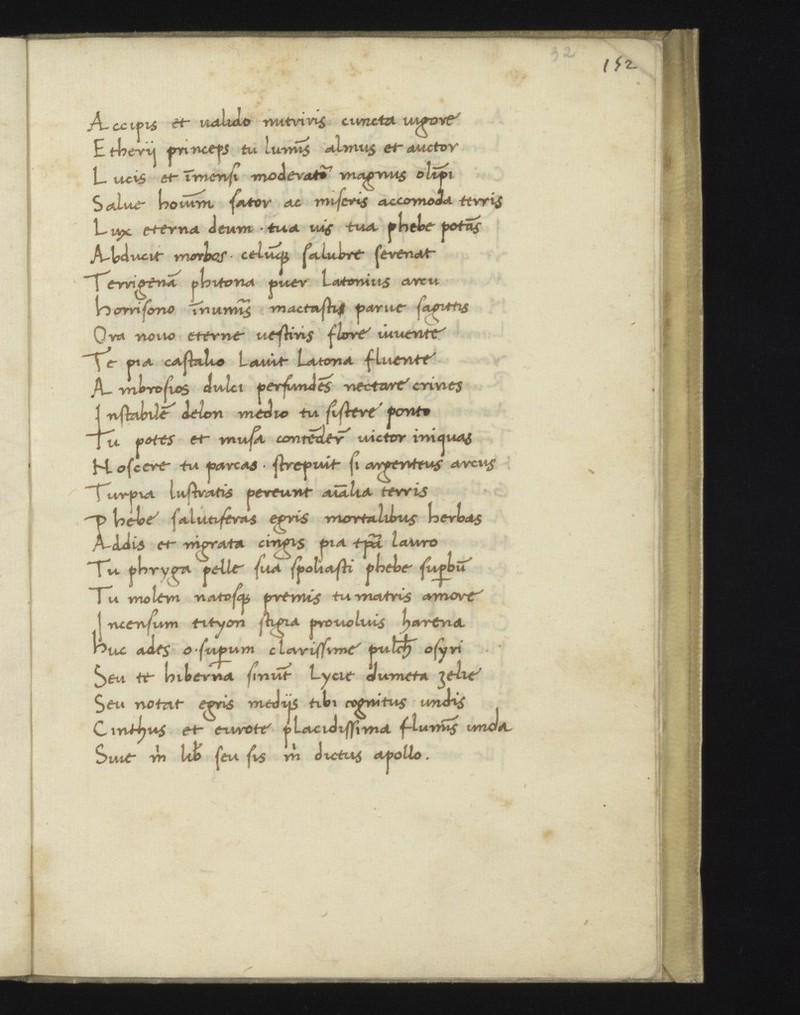 32
152
Accipis et ualido nutriris cuncta uigore
Etherij princeps tu lumīs almus et auctor
Lucis et īmensi moderatoꝛ magnus olīpi
Salue hoīum sator ac miseris accomoda terris
Lux eterna deum · tua uis tua phebe potēs
Abducit morbos · celūqꝫ salubre serenat
Terrigenā phitona puer Latonius arcu
horrisono īnumīs mactastis parue sagittis
Ora nouo eterne uestiris flore iuuente
Te pia castalio Lauit Latona fluente
Ambrosios dulci perfundēs nectare crines
Instabilē delon medio tu sistere ponto
Tu potes et musa contēdeꝛ̄ uictor iniquas
Noscere tu parcas · strepuit si argenteus arcus
Turpia lustratis pereunt aīalia terris
Phebe salutiferas egris mortalibus herbas
Addis et nigrata cingis pia tp̄a lauro
Tu phryga pelle sua spoliasti phebe suꝑbū
Tu molem natosqꝫ premis tu matris amore
Incensum tityon stigia prouoluis harena
huc ades o · suꝑum clarissime pulch̄ osyri
Seu te hiberna sinūt Lycie dumeta zelie
Seu notat egris medijs tibi cognitus undis
Cinthus et eurote placidissima flumīs unda
Siue m̄ lib̄ seu sis m̄ dictus apollo .